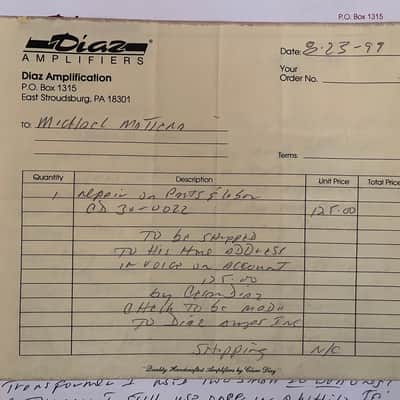 P.O. Box 1315
Diaz®
AMPLIFIERS
Diaz Amplification
P.O. Box 1315
East Stroudsburg, PA 18301
Date: 8-23-99
Your
Order No.
TO: Michael
Terms
Quantity Description Unit Price Total Price
1 Repair on Parts & labor
CD 30-0022 125.00
TO be shipped
TO His Home ADDress
invoice on Account
125.00
by Cesar Diaz
Check TO be made
TO Diaz Amps Inc
Shipping N/C
"Quality Handcrafted Amplifiers by Cesar Diaz"
Transformer I
I still use